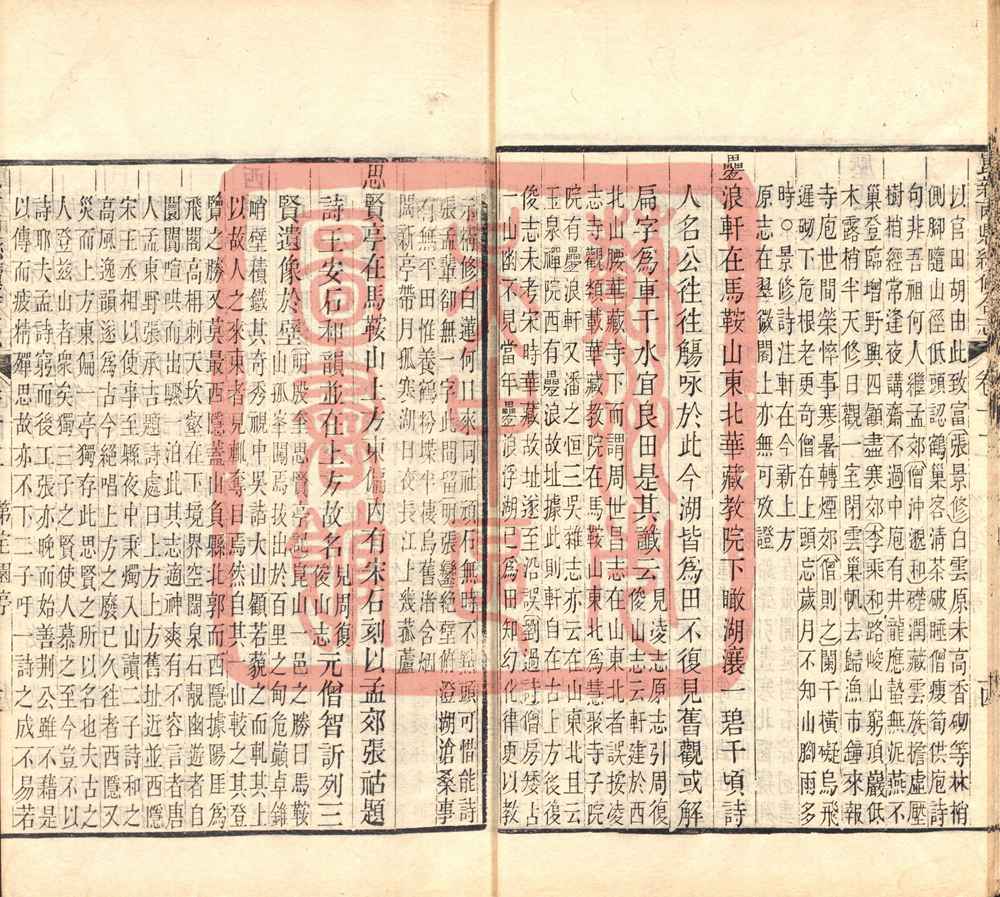 以官田湖由此致富張景修白雲原未高香砌等林梢
側腳隨山徑低頭認鶴巢客清茶破睡僧瘦筍供庖詩
句非吾祖何人繼孟郊僧沖邈和礎潤藏雲族檐虛壓
樹梢經常逢夜講齋不過中庖有井龍應蟄無泥燕不
巢登臨增野興四顧盡寒郊李乘和路峻山窮頂巖低
木露梢半天修日觀一室閉雲巢帆去歸漁市鐘來報
寺庖世間榮悴事寒暑轉煙郊僧則之闌干橫礙烏飛
遲砌下危根老更奇僧在上頭忘歲月不知山腳雨多
時○景修詩注軒在今新上方
原志在翠微閣上亦無可攷證
罍浪軒在馬鞍山東北華藏教院下瞰湖瀼一碧千頃詩
人名公徃徃觴咏於此今湖皆爲田不復見舊觀或解
扁字爲車干水宜良田是其讖云見淩志原志引周復
俊山志云軒建於西
北山腰華藏寺下而謂周世昌志在山東北者誤按淩
志寺觀類載華藏教院在馬鞍山東北爲慧聚寺子院
院有罍浪軒又潘之恒三吳雜志亦云在山東北且云
玉泉禪院西有罍浪故址據此則軒自在古上方後復
俊志未考宋時華藏故址遂至沿誤劉過詩僧房矮占
一山幽不見當年罍浪浮湖已爲田知幻化律更以教
示精修白道何日來同社頑石無時不點頭可惜能詩
張孟輩卻無一字此間留明張鑾絕壁俯澄湖滄桑事
有無平田惟養鶴粉堞半棲烏舊渚含烟
闊新亭帶月孤寒湖日夜長江上幾菰蘆
思賢亭在馬鞍山上方東偏內有宋石刻以孟郊張祜題
詩王安石和韻並在上方故名見周復俊山志元僧智訢列三
賢遺像於壁明殷奎思賢亭記崑山一邑之勝曰馬鞍
山崒闖焉拔出於百里之甸危巔卓錐
峭壁積鐵其奇秀視中吳諸大山顧若藐之而軋其上
以故人之來東者見輒奪目焉然自其一山較之其登
覽之勝又莫最西隱蓋山負縣北郭而西隱據陽厓爲
飛閣高相刺天坎壑在下境界空闊泉石靚幽遊者自
闤闠喧哄而出驟一泊此其志適神爽有不容言者唐
人孟東野張承吉題詩處曰上方上方舊址近並西隱
宋王丞相以使事至縣夜中秉燭入山讀二子詩和之
高風逸韻遂爲古今絕唱上方之廢已久徃者西隱又
災而上方東偏一亭獨存此思賢之所以名也夫古之
人登兹山者衆矣獨三子之賢使人慕之至今豈不以
詩耶夫孟詩窮而後工張亦晚而始善荆公雖不藉是
以傳而疲精殫思故亦不下二子吁一詩之成不易若